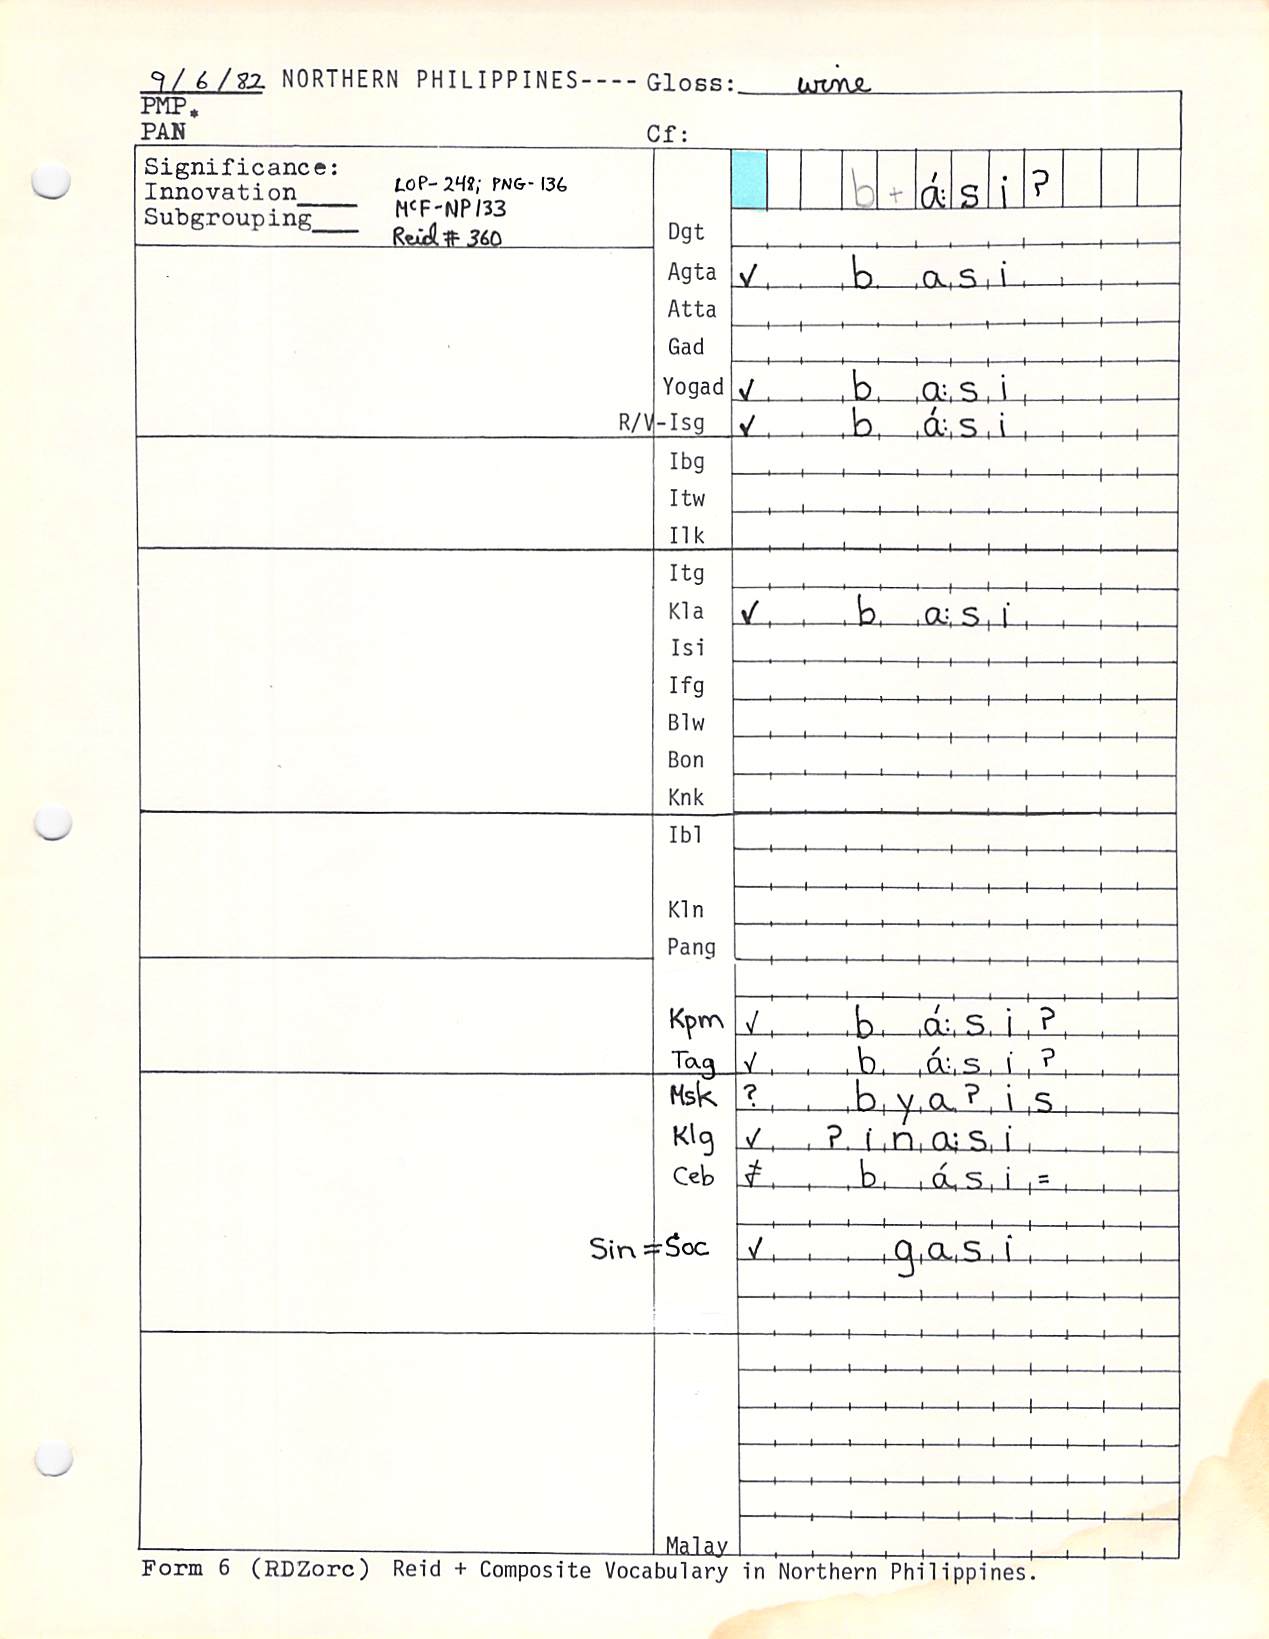 9/6/82 NORTHERN PHILIPPINES---- Gloss: wine
PMP*
PAN Cf:
Significance:
Innovation____ LOP-248; PNG-136
Subgrouping___ McF-NP133
Reid # 360
b + á: s i ?
Dgt
Agta ✓ b a s i
Atta
Gad
Yogad ✓ b a: s i
R/V-Isg ✓ b á: s i
Ibg
Itw
Ilk
Itg
Kla ✓ b a: s i
Isi
Ifg
Blw
Bon
Knk
Ibl
Kln
Pang
Kpm ✓ b á: s i ?
Tag ✓ b á: s i ?
Msk ? b y a ? i s
Klg ✓ ? i n a: s i
Ceb ≠ b á s i =
Sin = Soc ✓ g a s i
Malay
Form 6 (RDZorc) Reid + Composite Vocabulary in Northern Philippines.